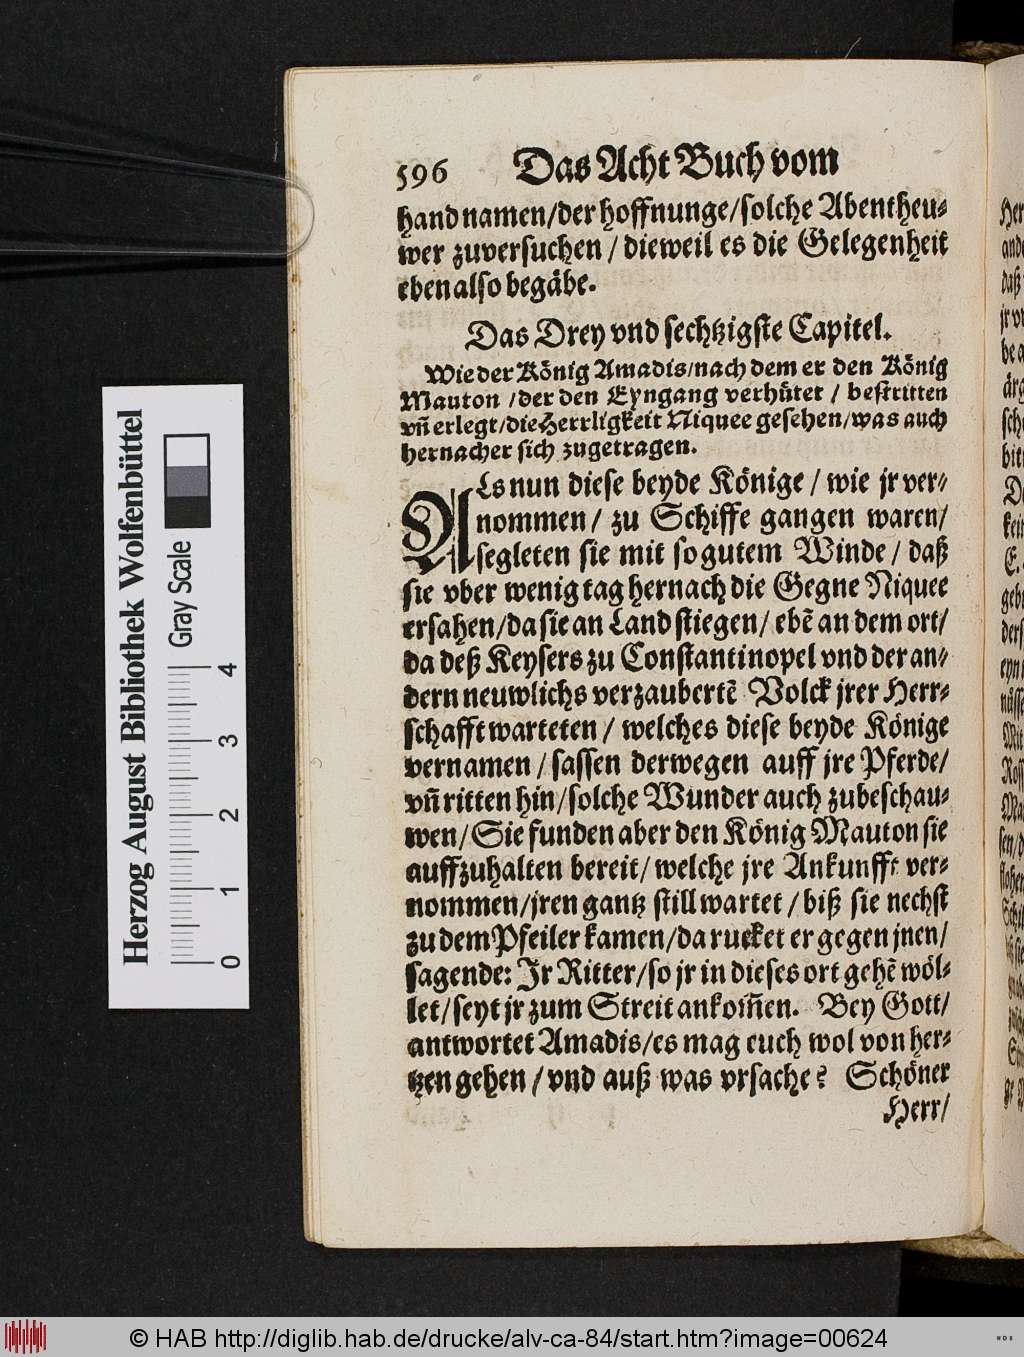 596 Das Acht Buch vom
hand namen/der hoffnunge/solche Abentheu-
wer zuversuchen / dieweil es die Gelegenheit
eben also begäbe.
Das Drey vnd sechtzigste Capitel.
Wie der König Amadis/nach dem er den König
Mauton /der den Eyngang verhütet / bestritten
vñ erlegt/die Herrligkeit Niquee gesehen/was auch
hernacher sich zugetragen.
ALs nun diese beyde Könige / wie jr ver-
nommen / zu Schiffe gangen waren/
segleten sie mit so gutem Winde / daß
sie vber wenig tag hernach die Gegne Niquee
ersahen/da sie an Land stiegen/ ebẽ an dem ort/
da deß Keysers zu Constantinopel vnd der an-
dern neuwlichs verzaubertẽ Volck jrer Herr-
schafft warteten / welches diese beyde Könige
vernamen / sassen derwegen auff jre Pferde/
vñ ritten hin/solche Wunder auch zubeschau-
wen/Sie funden aber den König Mauton sie
auffzuhalten bereit/ welche jre Ankunfft ver-
nommen/jren gantz still wartet / biß sie nechst
zu dem Pfeiler kamen/da rucket er gegen jnen/
sagende: Jr Ritter/so jr in dieses ort gehẽ wöl-
let/seyt jr zum Streit ankom̃en. Bey Gott/
antwortet Amadis/es mag euch wol von her-
tzen gehen / vnd auß was vrsache? Schöner
Herr/
Herzog August Bibliothek Wolfenbüttel
Gray Scale
0 1 2 3 4
© HAB http://diglib.hab.de/drucke/alv-ca-84/start.htm?image=00624